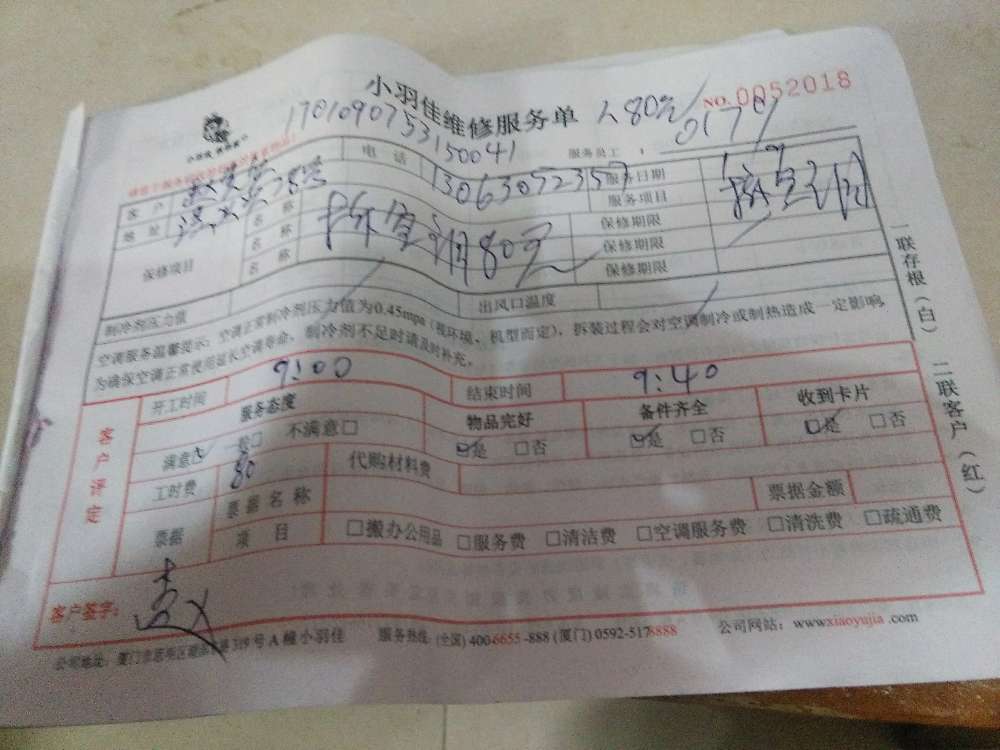 小羽佳维修服务单 人80元
NO.0052018
1701090753150041
服务员工：
客 户 电 话 服务日期
地 址 名 称 服务项目
保修项目 名 称 80元 保修期限
名 称 保修期限
保修期限
制冷剂压力值 出风口温度
空调服务温馨提示：空调正常制冷剂压力值为0.45mpa（视环境、机型而定），拆装过程会对空调制冷或制热造成一定影响，
为确保空调正常使用延长空调寿命，制冷剂不足时请及时补充。
一联存根（白） 二联客户（红）
客户评定
开工时间 9:00 结束时间 9:40
服务态度 物品完好 备件齐全 收到卡片
满意☑ 一般□ 不满意□ ☑是 □否 ☑是 □否 ☑是 □否
工时费 80 代购材料费
票据 票据名称 票据金额
项 目 □搬办公用品 □服务费 □清洁费 □空调服务费 □清洗费 □疏通费
客户签字：
公司地址：厦门市思明区 319号A幢小羽佳 服务热线：(全国) 400-6655-888 (厦门) 0592-5178888 公司网站：www.xiaoyujia.com